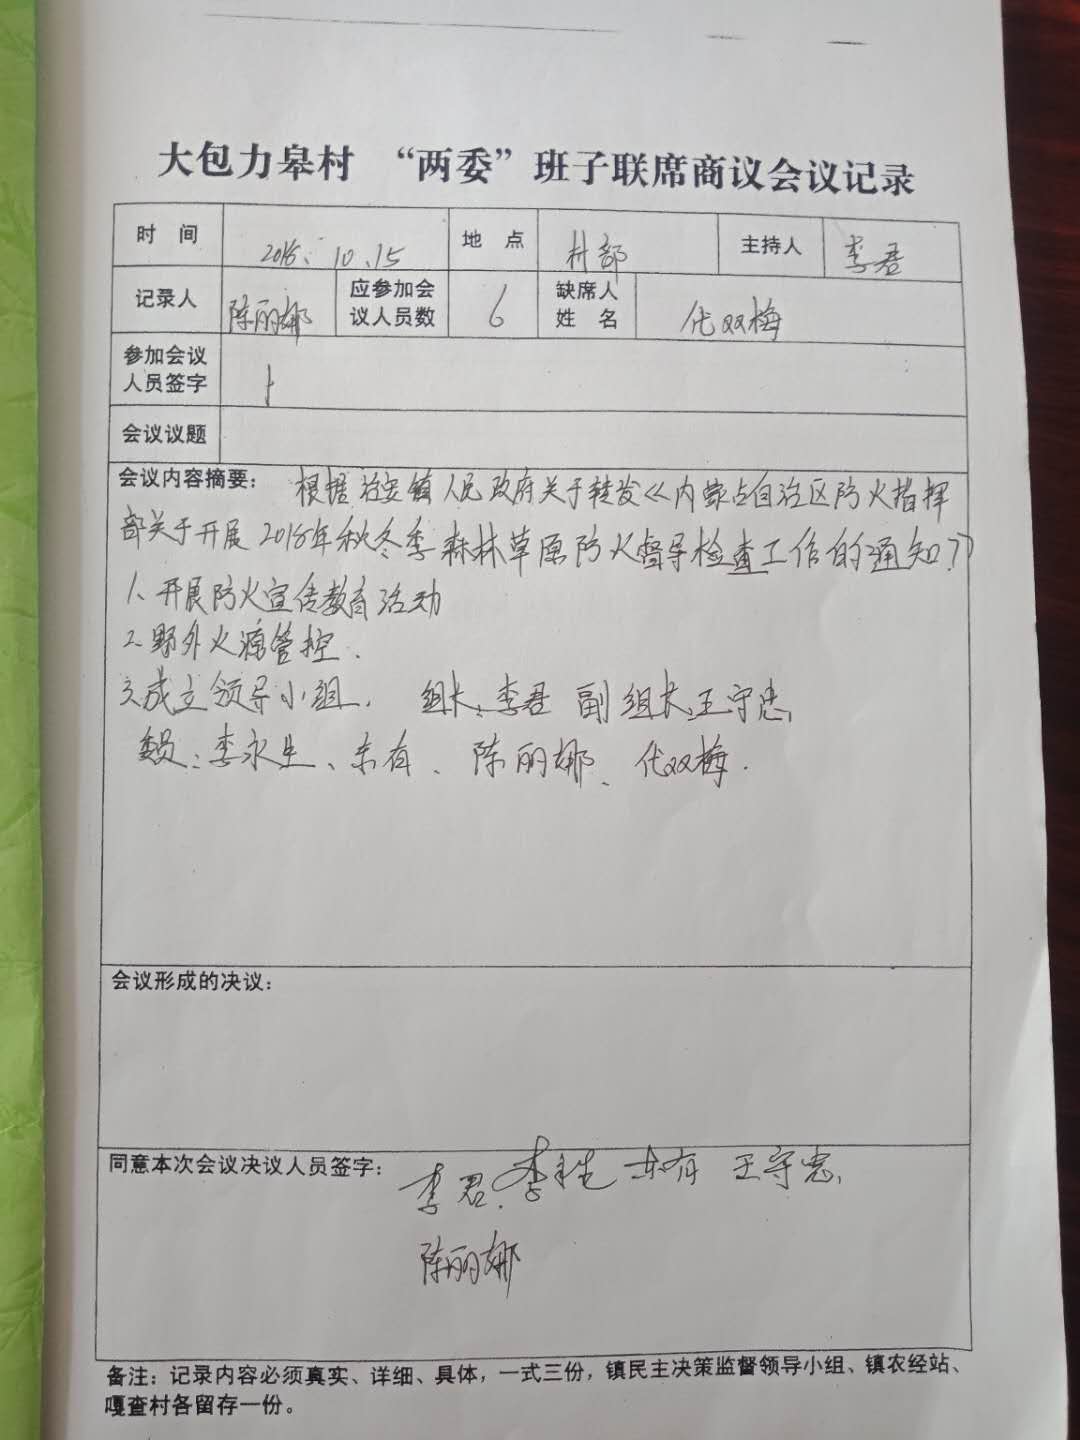 大包力皋村 “两委”班子联席商议会议记录
时 间 2018.10.15 地 点 村部 主持人 李君
记录人 陈丽娜 应参加会议人员数 6 缺席人姓名 代双梅
参加会议人员签字
会议议题
会议内容摘要： 根据治安镇人民政府关于转发《内蒙古自治区防火指挥
部关于开展2018年秋冬季森林草原防火督导检查工作的通知》
1、开展防火宣传教育活动
2、野外火源管控.
3、成立领导小组, 组长:李君 副组长:王守忠,
委员:李永生、东有、陈丽娜、代双梅.
会议形成的决议：
同意本次会议决议人员签字： 李君. 李永生 东有 王守忠,
陈丽娜
备注：记录内容必须真实、详细、具体，一式三份，镇民主决策监督领导小组、镇农经站、
嘎查村各留存一份。